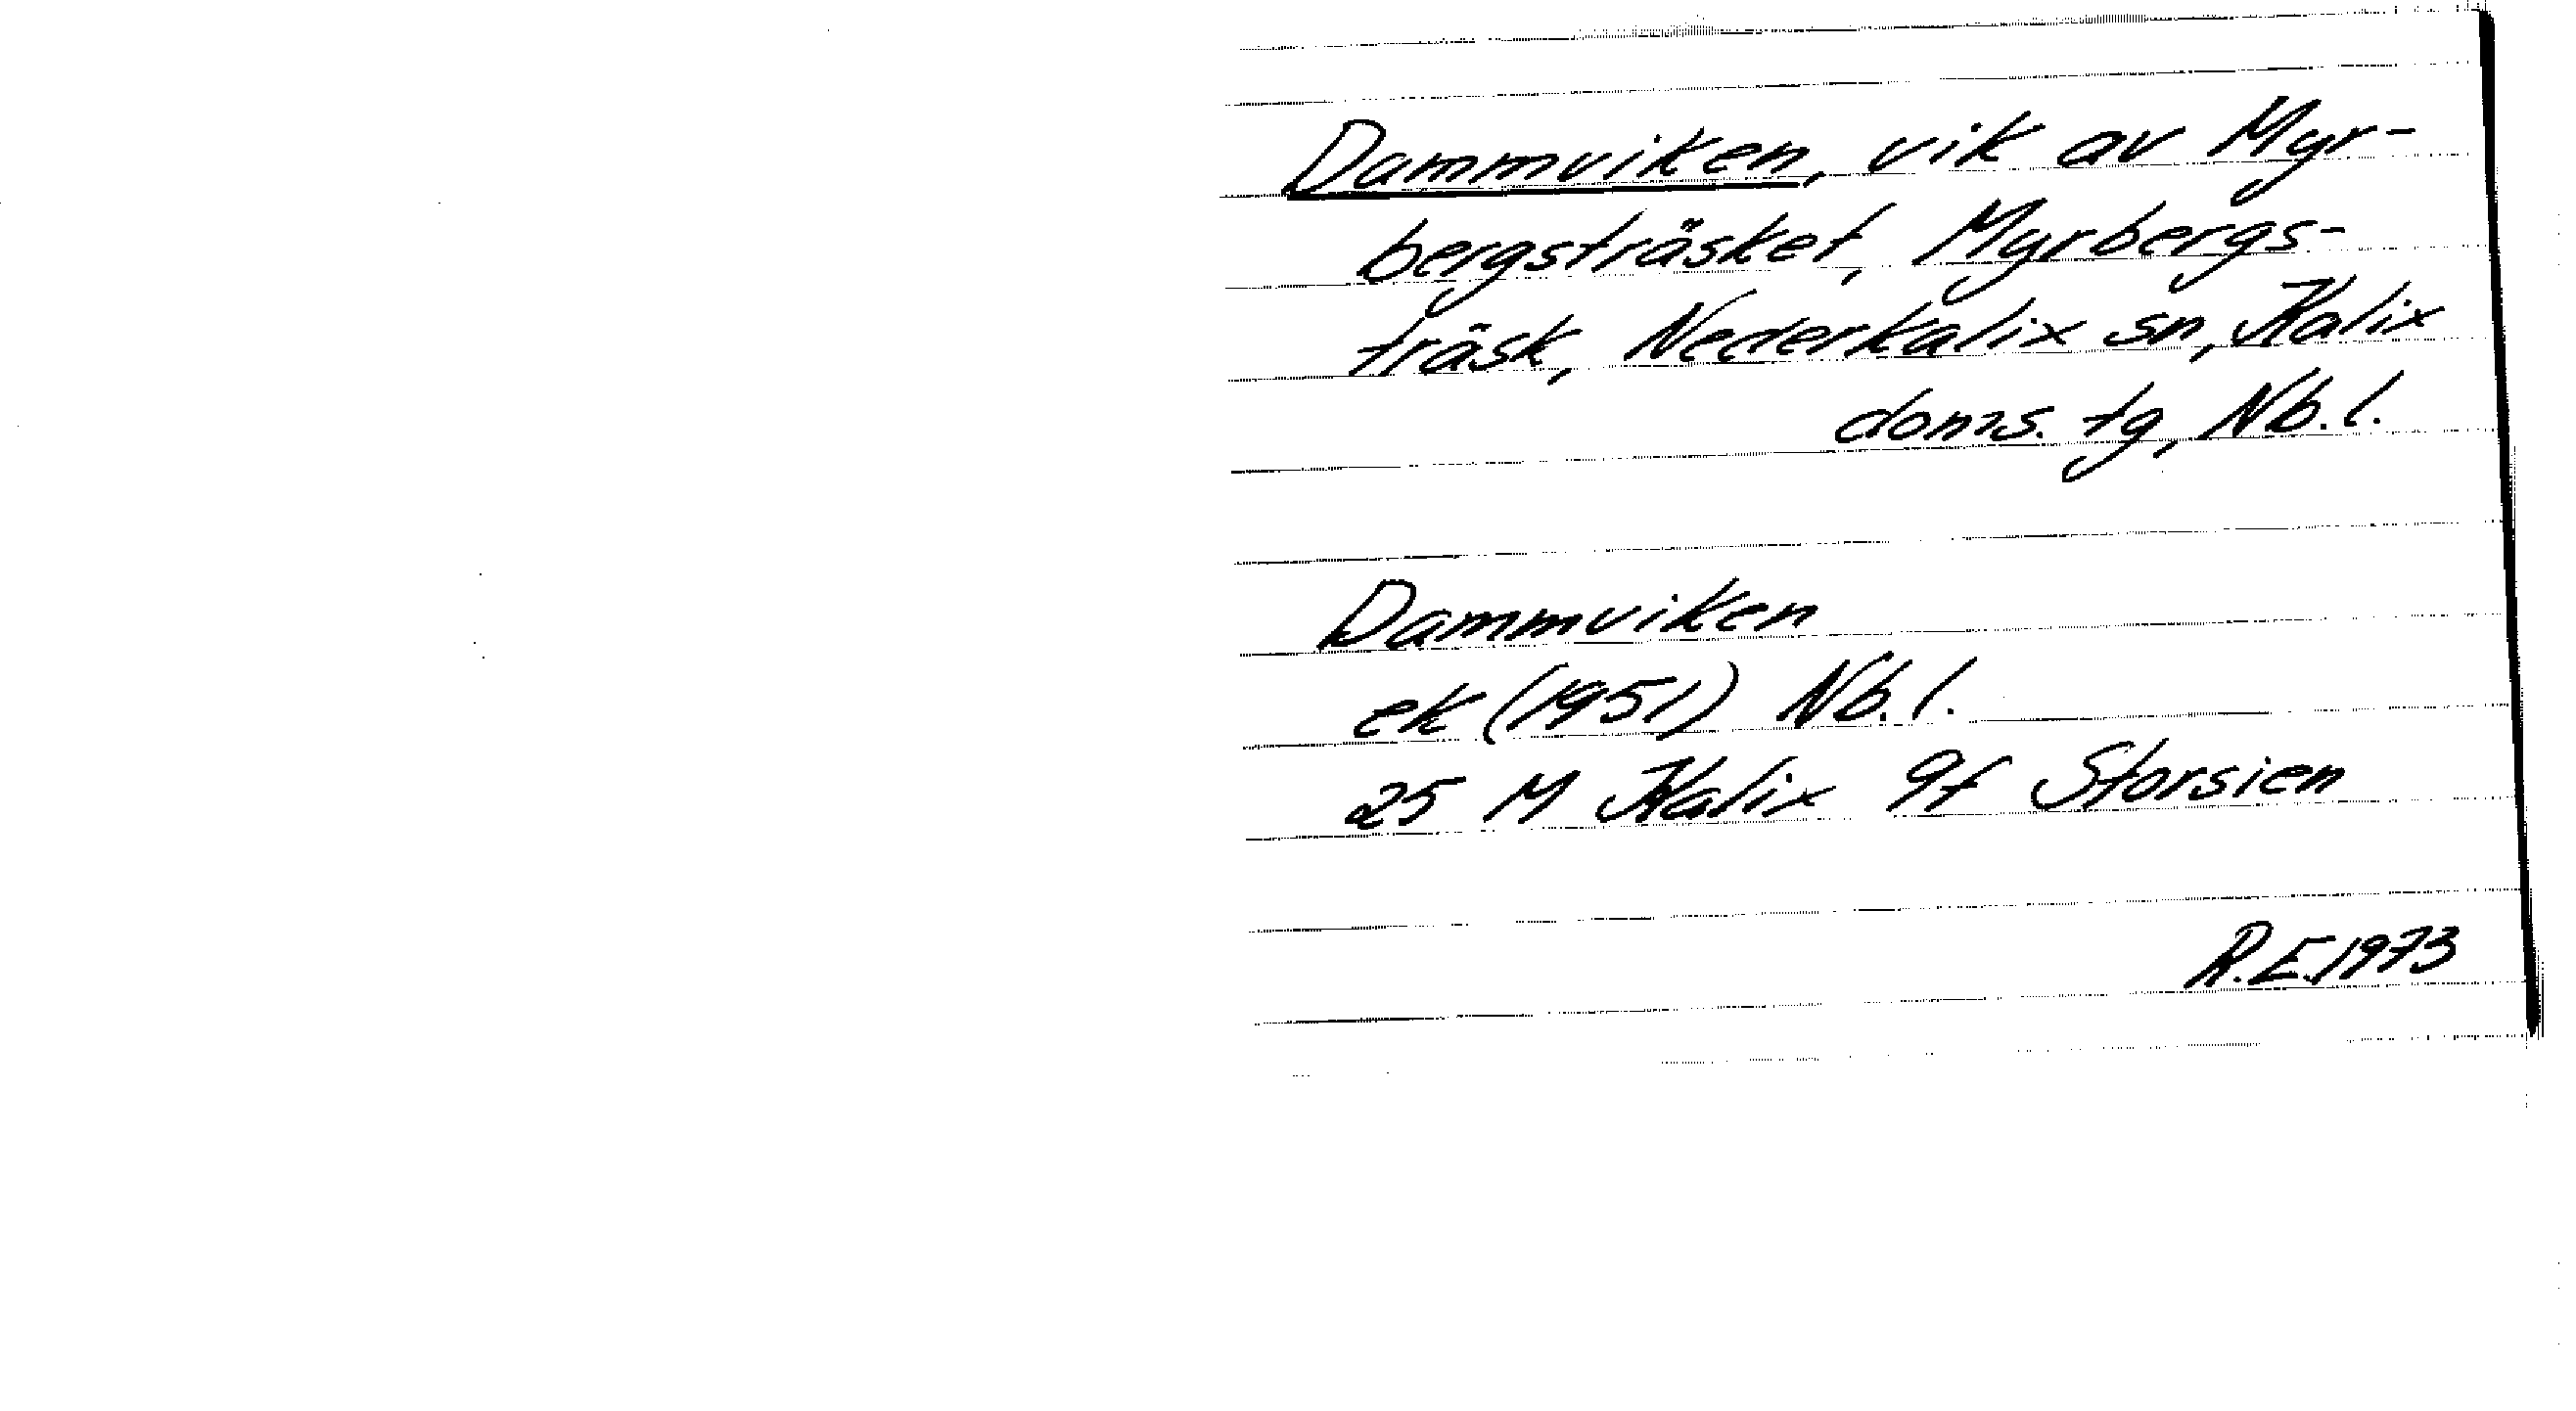 Dammviken, vik av Myr-
bergsträsket, Myrbergs-
träsk, Nederkalix sn, Kalix
doms. tg, Nb. l.
Dammviken
ek (1951) Nb. l.
25 M Kalix 9f Storsien
R.E. 1973